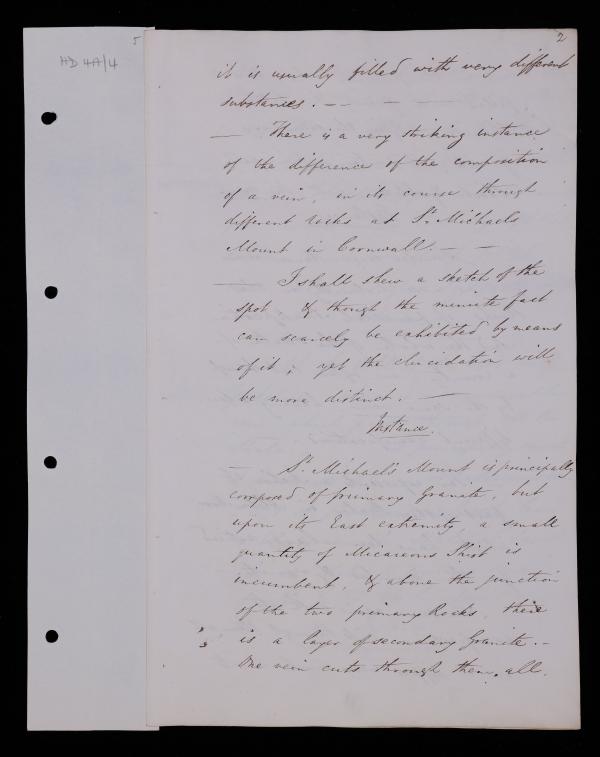 5
HD 4A/4
2
it is usually filled with very different
substances. — — —
— There is a very striking instance
of the difference of the composition
of a vein, in its course through
different rocks at St. Michaels
Mount in Cornwall. — —
— I shall shew a sketch of the
spot. & though the minute fact
can scarcely be exhibited by means
of it; yet the elucidation will
be more distinct. —
Instance.
— St. Michael's Mount is principally
composed of primary Granite, but
upon its East extremity, a small
quantity of Micaceous Shist is
incumbent, & above the junction
of the two primary Rocks, there
is a layer of secondary Granite. -
One vein cuts through them all.